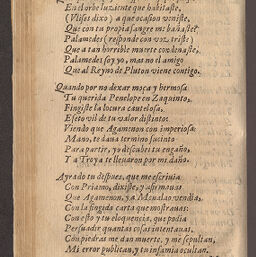 En el orbe luziente que habitaste,
(Vlises dixo) a que ocasion veniste,
Que con tu propia sangre mi bañaste?
Palamedes (responde con voz triste)
Que a tan horrible muerte condenaste,
Palamedes soy yo, mas no el amigo
Que al Reyno de Pluton viene contigo.
Quando por no dexar moça y hermosa
Tu querida Penelope en Zaquinto,
Fingiste la locura cautelosa,
Efeto vil de tu valor distinto:
Viendo que Agamenon con imperiosa
Mano, te daua termino sucinto
Para partir, yo descubri tu engaño,
Y a Troya te lleuaron por mi daño.
Ayrado tu despues, que me escriuia
Con Priamo, dixiste, y afirmauas
Que Agamenon, y a Menalao vendia,
Con la fingida carta que mostrauas:
Con esto y tu eloquencia, que podia
Persuadir quantas cosas intentauas,
Con piedras me dan muerte, y me sepultan,
Mi error publican, y tu infamia ocultan.